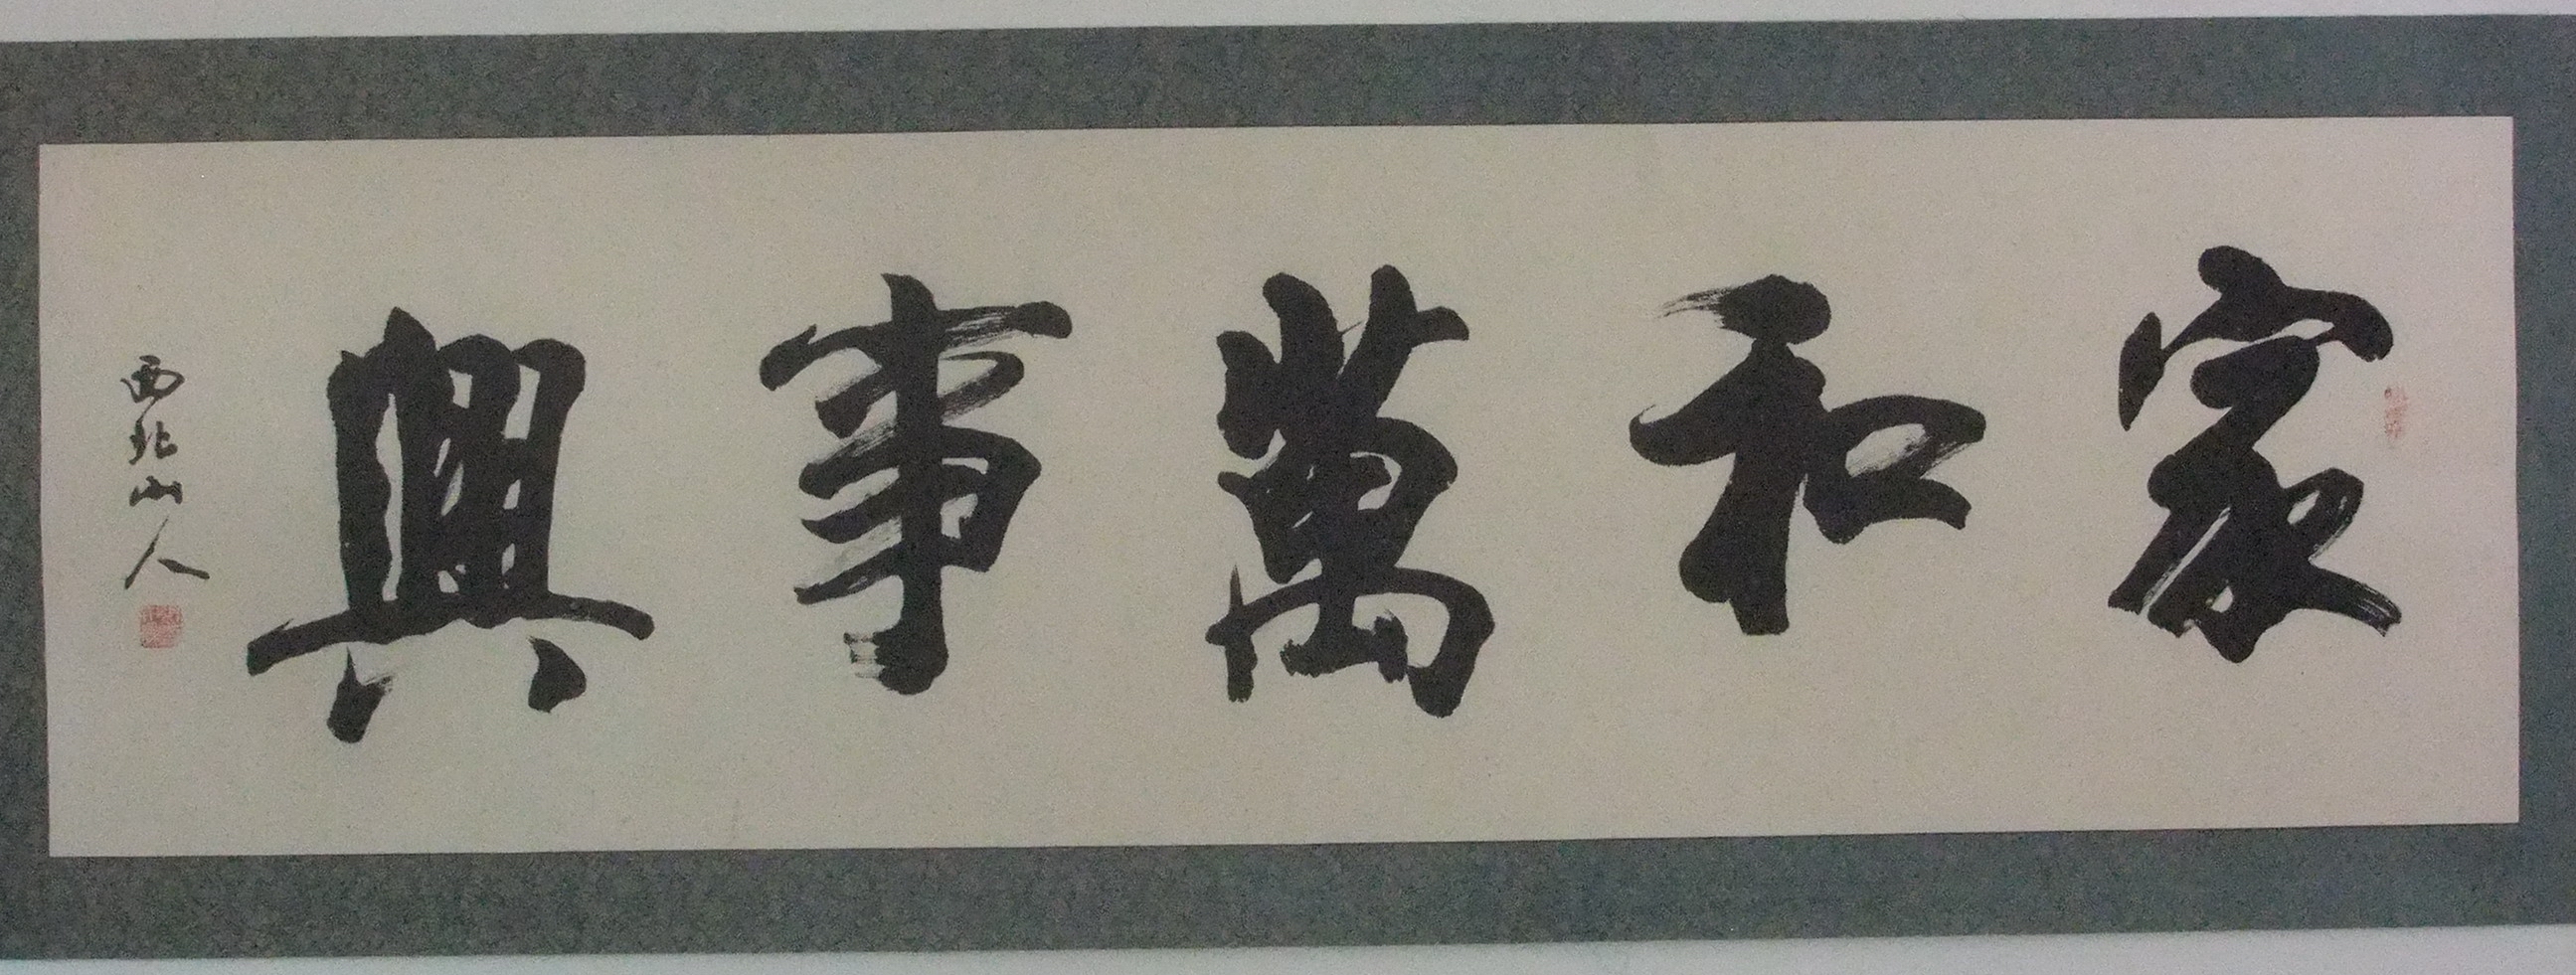 家和萬事興
西北山人